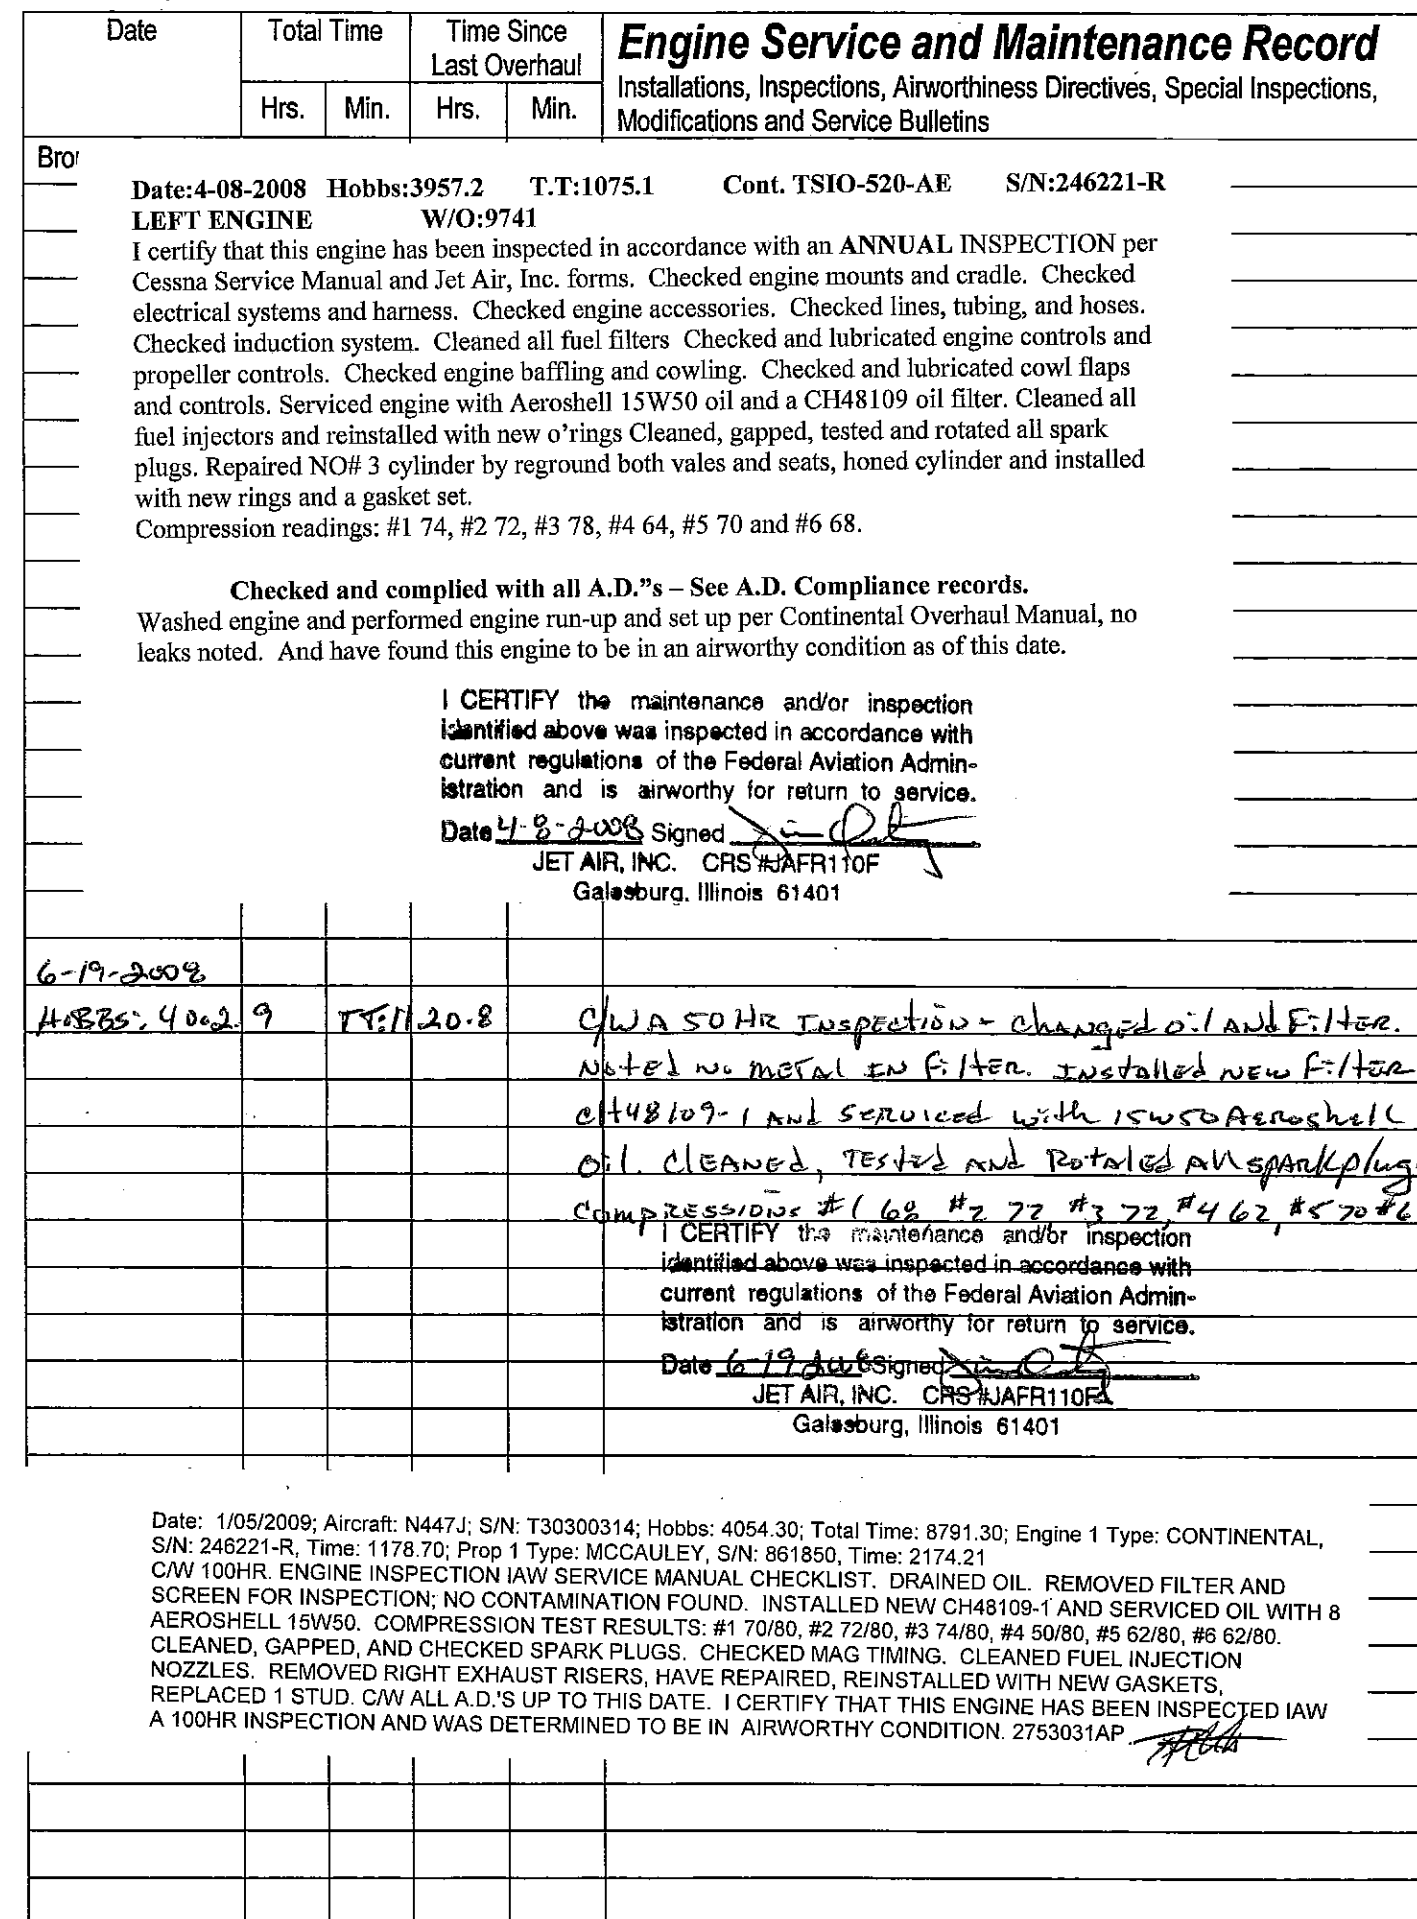 Date Total Time Time Since Last Overhaul Engine Service and Maintenance Record
Hrs. Min. Hrs. Min. Installations, Inspections, Airworthiness Directives, Special Inspections,
Modifications and Service Bulletins
Date:4-08-2008 Hobbs:3957.2 T.T:1075.1 Cont. TSIO-520-AE S/N:246221-R
LEFT ENGINE W/O:9741
I certify that this engine has been inspected in accordance with an ANNUAL INSPECTION per
Cessna Service Manual and Jet Air, Inc. forms. Checked engine mounts and cradle. Checked
electrical systems and harness. Checked engine accessories. Checked lines, tubing, and hoses.
Checked induction system. Cleaned all fuel filters Checked and lubricated engine controls and
propeller controls. Checked engine baffling and cowling. Checked and lubricated cowl flaps
and controls. Serviced engine with Aeroshell 15W50 oil and a CH48109 oil filter. Cleaned all
fuel injectors and reinstalled with new o’rings Cleaned, gapped, tested and rotated all spark
plugs. Repaired NO# 3 cylinder by reground both vales and seats, honed cylinder and installed
with new rings and a gasket set.
Compression readings: #1 74, #2 72, #3 78, #4 64, #5 70 and #6 68.
Checked and complied with all A.D.”s – See A.D. Compliance records.
Washed engine and performed engine run-up and set up per Continental Overhaul Manual, no
leaks noted. And have found this engine to be in an airworthy condition as of this date.
I CERTIFY the maintenance and/or inspection
identified above was inspected in accordance with
current regulations of the Federal Aviation Admin-
istration and is airworthy for return to service.
Date 4-8-2008 Signed
JET AIR, INC. CRS #JAFR110F
Galesburg, Illinois 61401
6-19-2008
HOBBS: 4002.9 TT:1120.8 C/W A 50 HR INSPECTION - CHANGED oil AND Filter.
Noted no METAL IN filter. INStalled NEW filter
CH48109-1 AND SERVICED with 15W50 Aeroshell
Oil. CLEANED, TESted AND Rotated All SPARKplug
COMPRESSIONS #1 68 #2 72 #3 72, #4 62, #5 70 #6
I CERTIFY the maintenance and/or inspection
identified above was inspected in accordance with
current regulations of the Federal Aviation Admin-
istration and is airworthy for return to service.
Date 6-19 2008 Signed
JET AIR, INC. CRS #JAFR110F
Galesburg, Illinois 61401
Date: 1/05/2009; Aircraft: N447J; S/N: T30300314; Hobbs: 4054.30; Total Time: 8791.30; Engine 1 Type: CONTINENTAL,
S/N: 246221-R, Time: 1178.70; Prop 1 Type: MCCAULEY, S/N: 861850, Time: 2174.21
C/W 100HR. ENGINE INSPECTION IAW SERVICE MANUAL CHECKLIST. DRAINED OIL. REMOVED FILTER AND
SCREEN FOR INSPECTION; NO CONTAMINATION FOUND. INSTALLED NEW CH48109-1 AND SERVICED OIL WITH 8
AEROSHELL 15W50. COMPRESSION TEST RESULTS: #1 70/80, #2 72/80, #3 74/80, #4 50/80, #5 62/80, #6 62/80.
CLEANED, GAPPED, AND CHECKED SPARK PLUGS. CHECKED MAG TIMING. CLEANED FUEL INJECTION
NOZZLES. REMOVED RIGHT EXHAUST RISERS, HAVE REPAIRED, REINSTALLED WITH NEW GASKETS,
REPLACED 1 STUD. C/W ALL A.D.'S UP TO THIS DATE. I CERTIFY THAT THIS ENGINE HAS BEEN INSPECTED IAW
A 100HR INSPECTION AND WAS DETERMINED TO BE IN AIRWORTHY CONDITION. 2753031AP